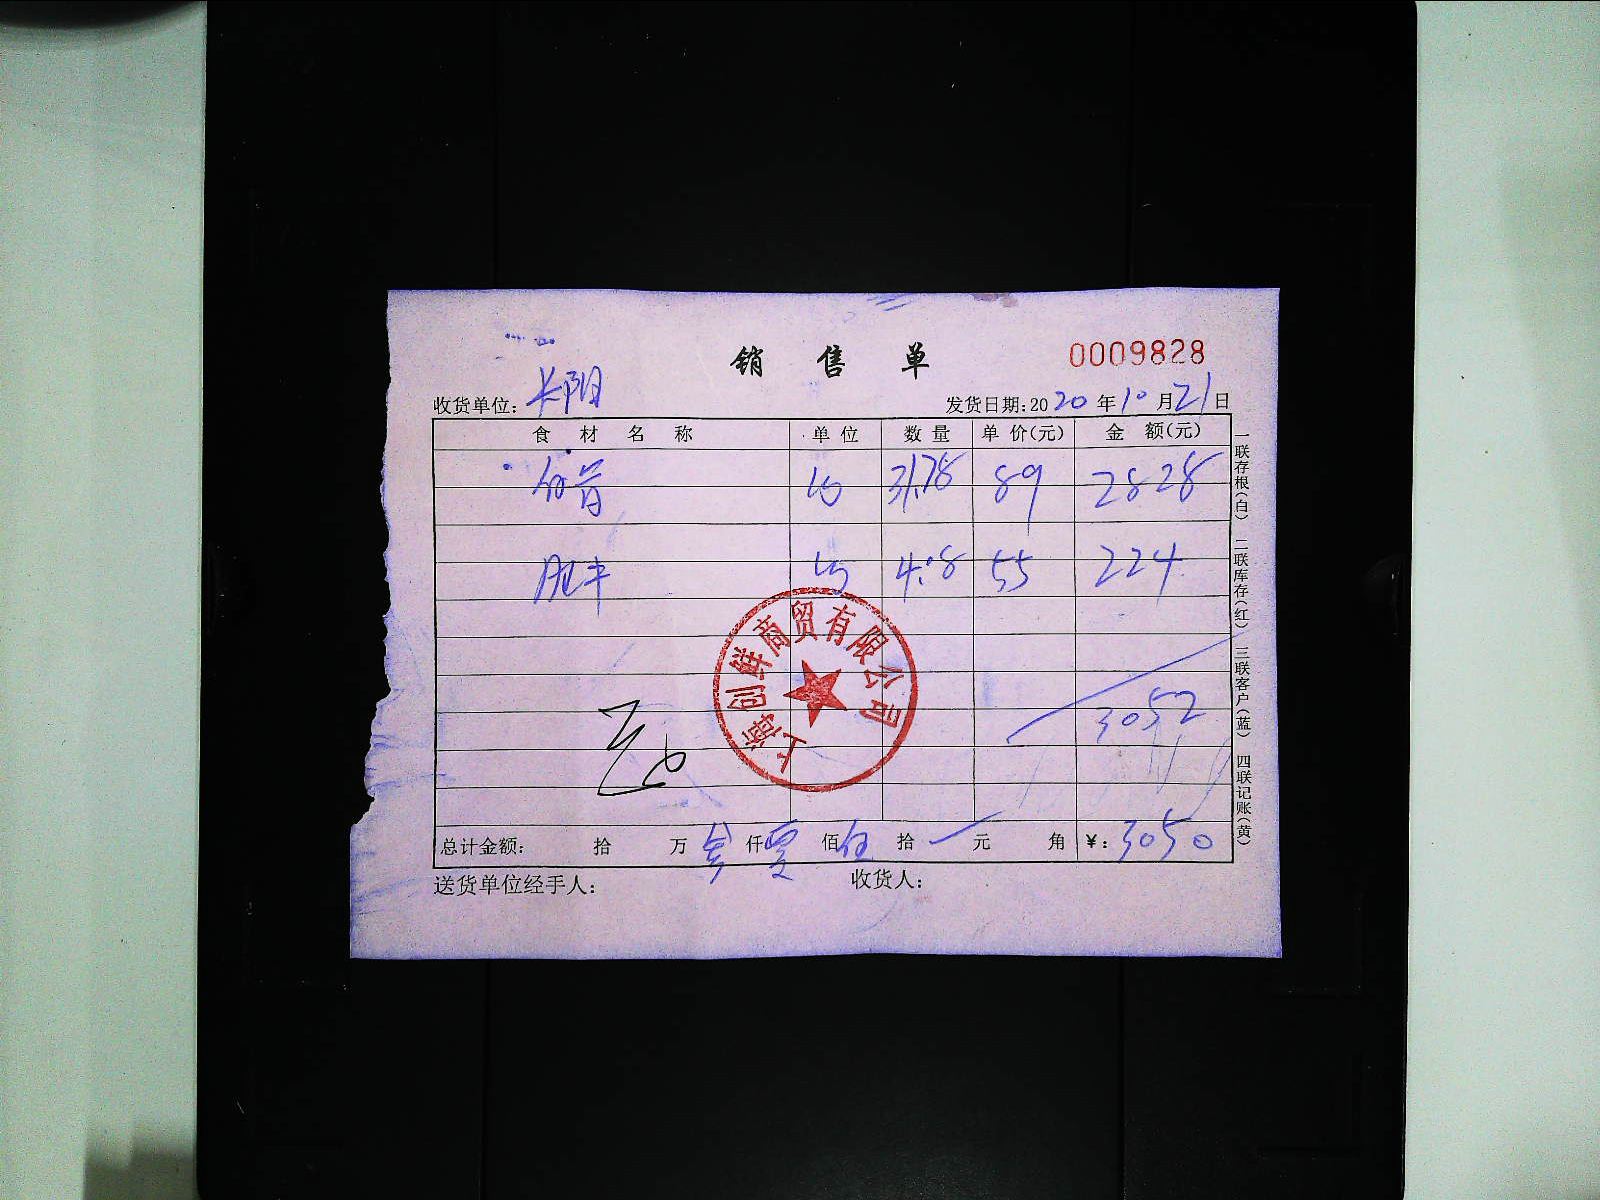 销售单
0009828
收货单位: 长阳
发货日期:2020年10月21日
食材名称 单位 数量 单价(元) 金额(元)
31.78 89 2828
肥羊 4.08 55 224
3052
总计金额: 拾 万 叁 仟 零 佰 伍 拾 元 角 ¥: 3050
送货单位经手人: 收货人:
一联存根(白) 二联库存(红) 三联客户(蓝) 四联记账(黄)
上海创鲜商贸有限公司